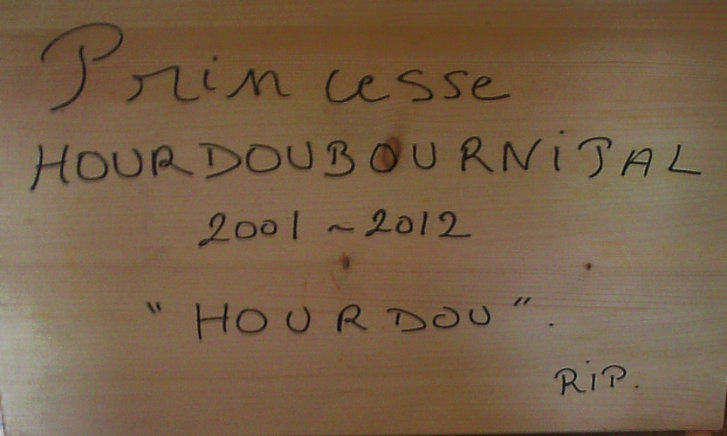 Princesse
HOURDOUBOURNiJAL
2001 ~ 2012
"HOURDOU".
RiP.